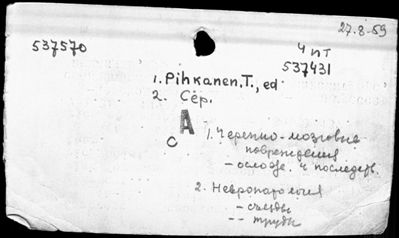 27.8-69
537570
4 пт
537431
1. Pihkanen, T., ed
2. Сер.
А
С
1. Черепно-мозговые
повреждения
- ослож. и последств.
2. Невропатология
- съезды
-- труды